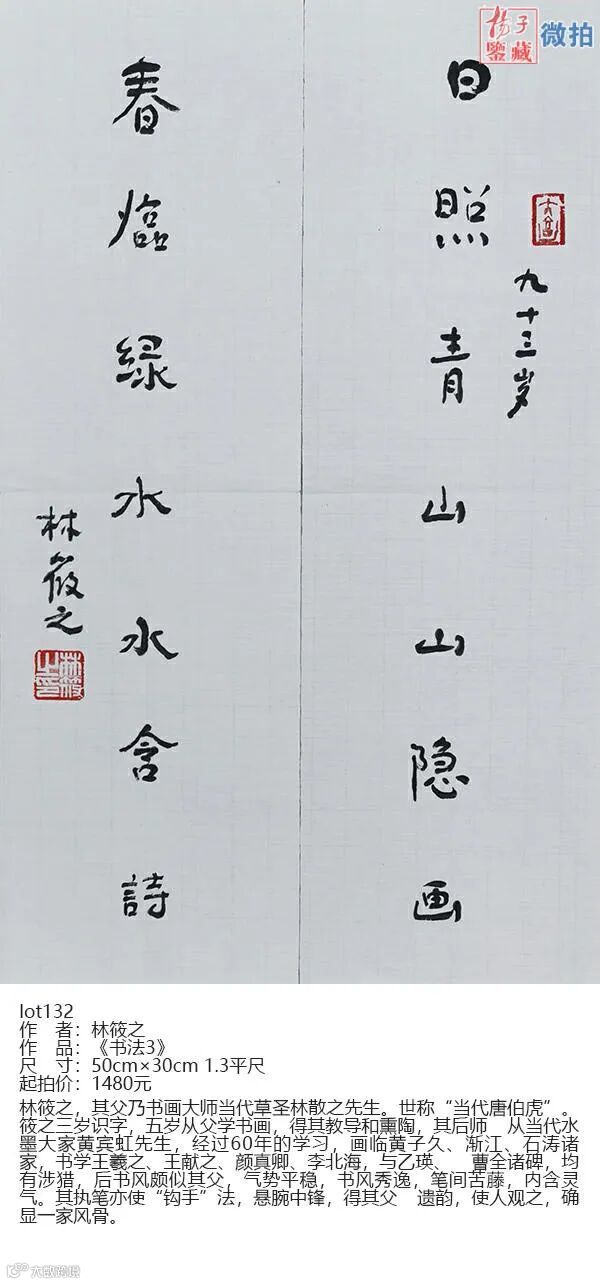 扬子
鉴藏
微拍
日照青山山隐画
九十三岁
春临绿水水含詩
林筱之
林筱
之印
lot132
作 者：林筱之
作 品：《书法3》
尺 寸：50cm×30cm 1.3平尺
起拍价：1480元
林筱之，其父乃书画大师当代草圣林散之先生。世称“当代唐伯虎”。
筱之三岁识字，五岁从父学书画，得其教导和熏陶，其后师 从当代水
墨大家黄宾虹先生，经过60年的学习，画临黄子久、渐江、石涛诸
家，书学王羲之、王献之、颜真卿、李北海，与乙瑛、 曹全诸碑，均
有涉猎，后书风颇似其父，气势平稳，书风秀逸，笔间苦藤，内含灵
气。其执笔亦使“钩手”法，悬腕中锋，得其父 遗韵，使人观之，确
显一家风骨。
大数跨境